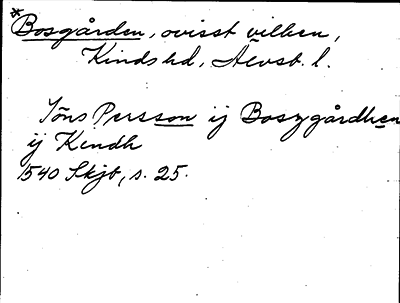 *Bosgården, ovisst vilken,
Kinds hd, Älvsb. l.
Jöns Persson ij Boszgårdhen
ij Kindh
1540 Skjb, s. 25.